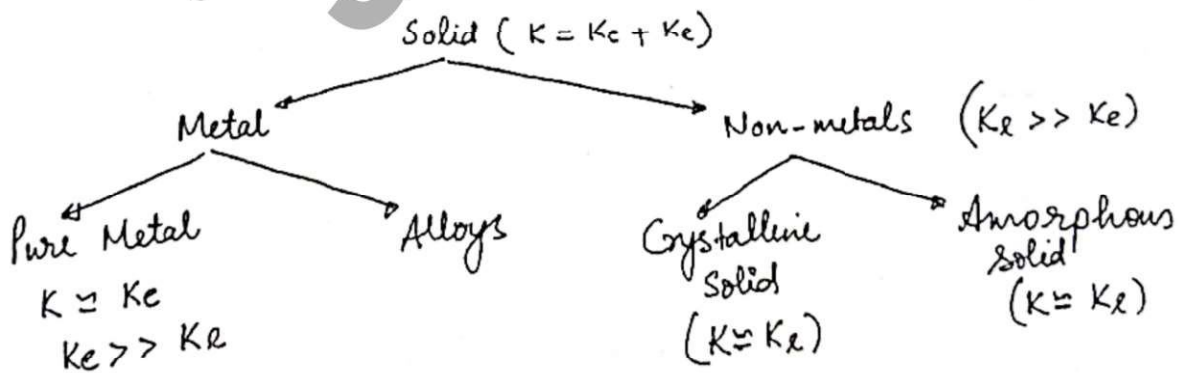 Solid ( K = Kc + Ke)
Metal
Non-metals (Kℓ >> Ke)
Pure Metal
K ≃ Ke
Ke >> Kℓ
Alloys
Crystalline
Solid
(K ≃ Kℓ)
Amorphous
Solid
(K ≃ Kℓ)